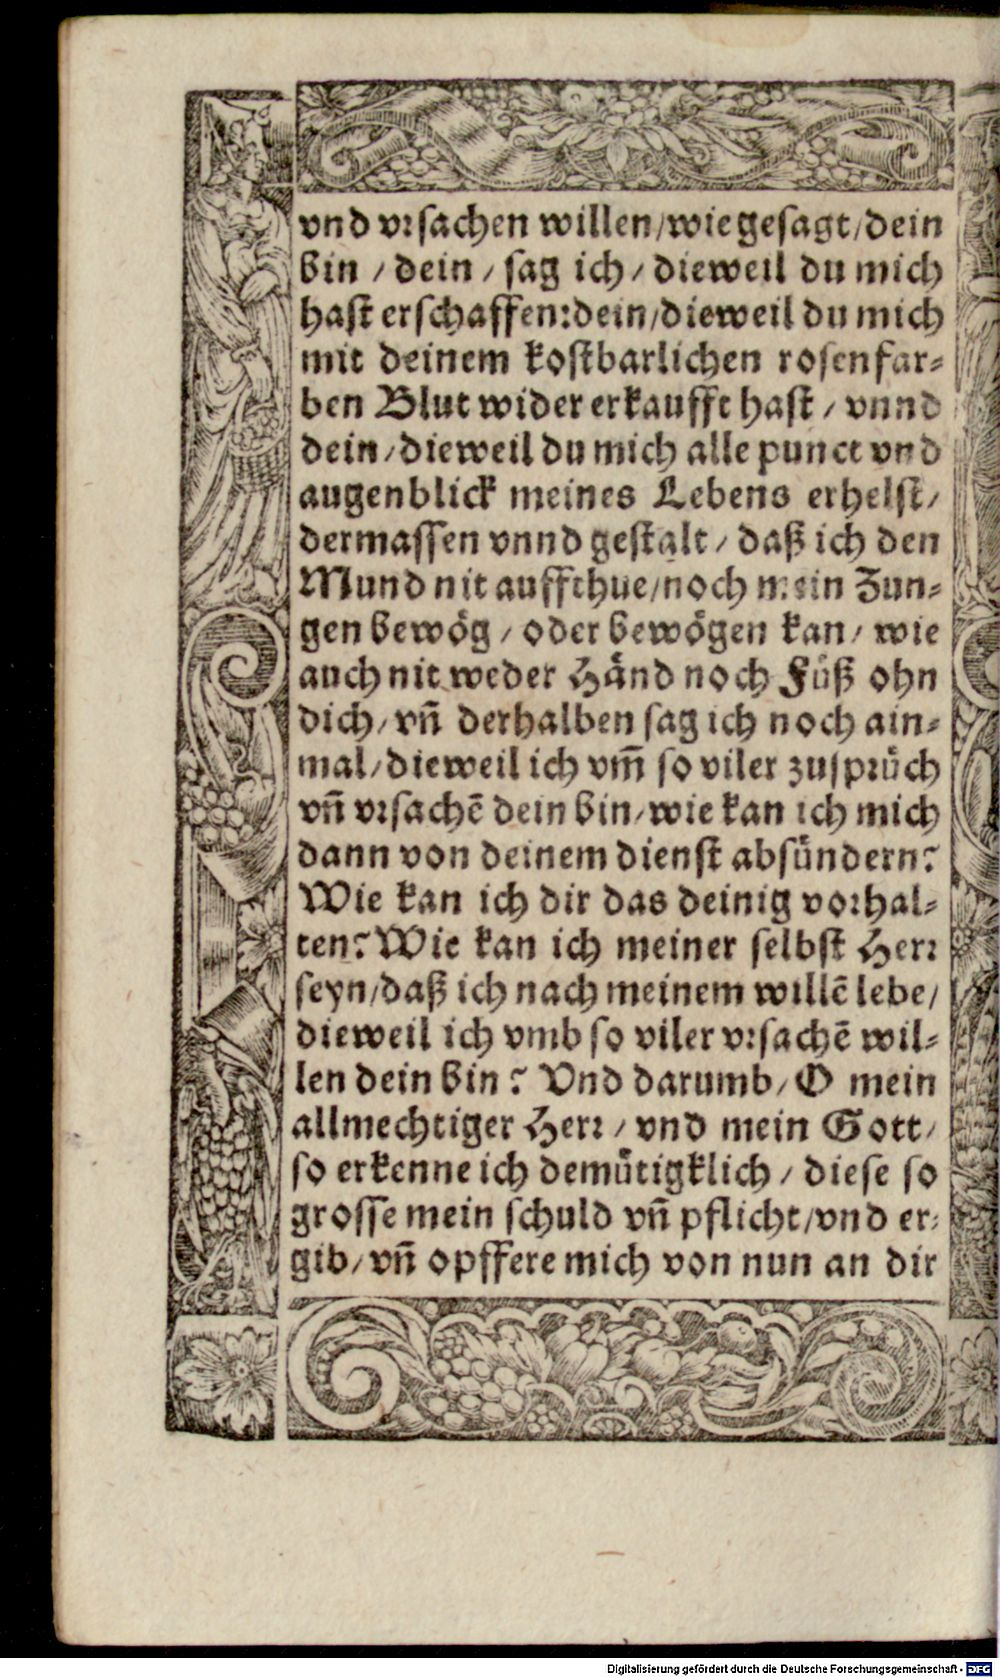 vnd vrsachen willen/wie gesagt/dein
bin / dein / sag ich / dieweil du mich
hast erschaffen:dein/dieweil du mich
mit deinem kostbarlichen rosenfar-
ben Blut wider erkaufft hast / vnnd
dein/dieweil du mich alle punct vnd
augenblick meines Lebens erhelst/
dermassen vnnd gestalt / daß ich den
Mund nit auffthue/noch mein Zun-
gen bewög / oder bewögen kan/ wie
auch nit weder Händ noch Füß ohn
dich/ vñ derhalben sag ich noch ain-
mal/dieweil ich vm̃ so viler zusprüch
vñ vrsachẽ dein bin/wie kan ich mich
dann von deinem dienst absündern?
Wie kan ich dir das deinig vorhal-
ten? Wie kan ich meiner selbst Herr
seyn/daß ich nach meinem willẽ lebe/
dieweil ich vmb so viler vrsachẽ wil-
len dein bin? Vnd darumb/ O mein
allmechtiger Herr / vnd mein Gott/
so erkenne ich demütigklich / diese so
grosse mein schuld vñ pflicht/vnd er-
gib/ vñ opffere mich von nun an dir
Digitalisierung gefördert durch die Deutsche Forschungsgemeinschaft - DFG